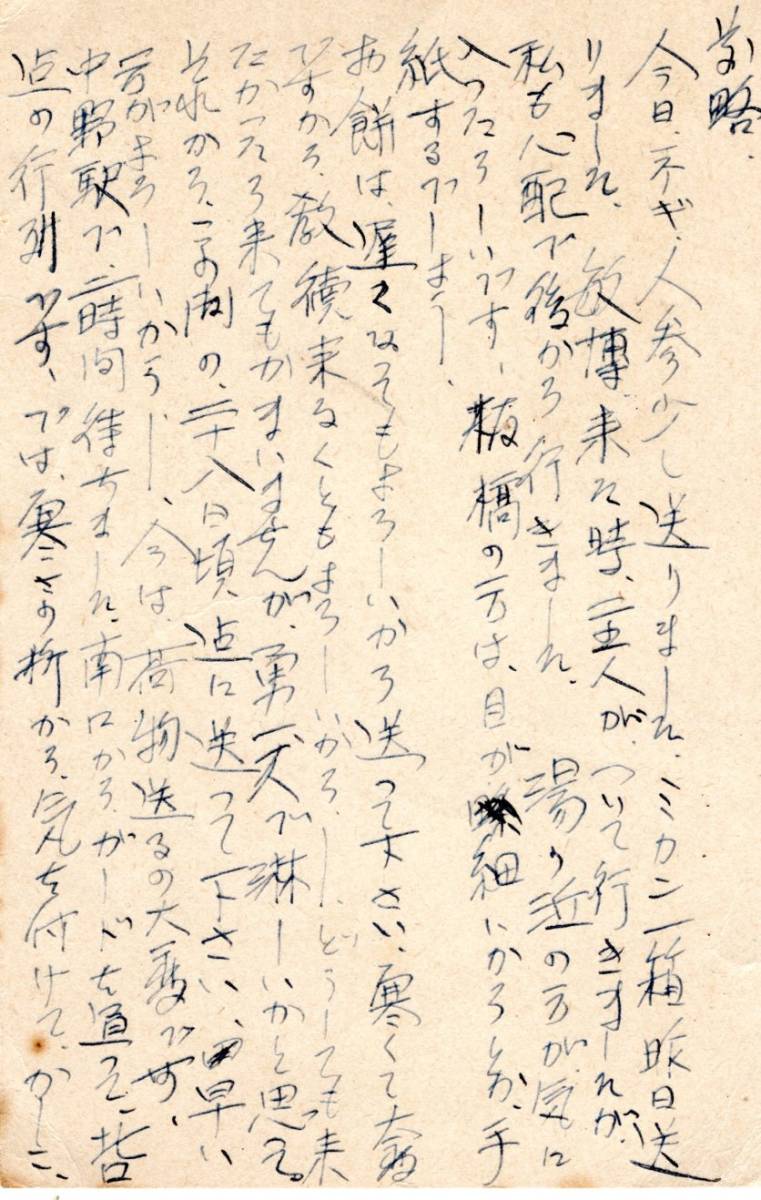 前略、
今日、ネギ、人参少し送りました、ミカン一箱、昨日送
りました、敏博来た時、主人が、ついて行きましたが、
私も心配で後から行きました、湯ヶ辺の方が気に
入ったらしいです、板橋の方は、目が細いからとか、手
紙するでしょう、
お餅は、遅くなってもよろしいから送って下さい、寒くて大変
ですから、教徳来なくともよろしいから、どうしても来
たかったら来てもかまいませんが、勇一犬で淋しいかと思って
それから、の、二十八日頃、迄に送って下さい、早い
方がよろしいから、今は、荷物送るの大変です、
中野駅で、二時間待ちました、南口から、ガードを通って、北口
迄の行列です、では、寒さの折から、気を付けて、かしこ、